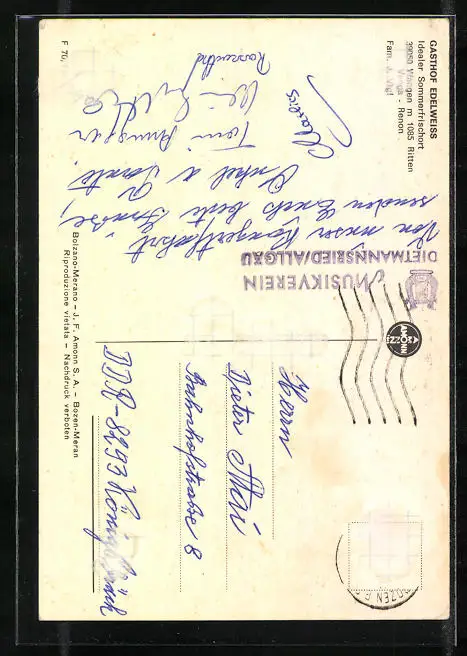 GASTHOF EDELWEISS
Idealer Sommerfrischort
39050 Wangen m 1085 Ritten
Vanga - Renon
Fam.
MUSIKVEREIN
DIETMANNSRIED/ALLGÄU
Von unser Konzertfahrt
senden Euch beste Grüße,
Onkel u Tante
Toni
Marlies
F 70,
AMONN
BOZEN
Bolzano-Merano – J. F. Amonn S. A. – Bozen-Meran
Riproduzione vietata – Nachdruck verboten
Herrn
Dieter
Bahnhofstrasse 8
DDR-8293 Königsbrück